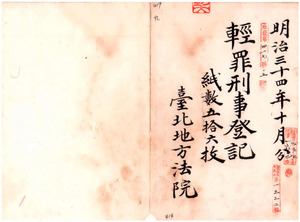 明治三十四年十月分
輕罪刑事登記
紙數五拾六枚
臺北地方法院